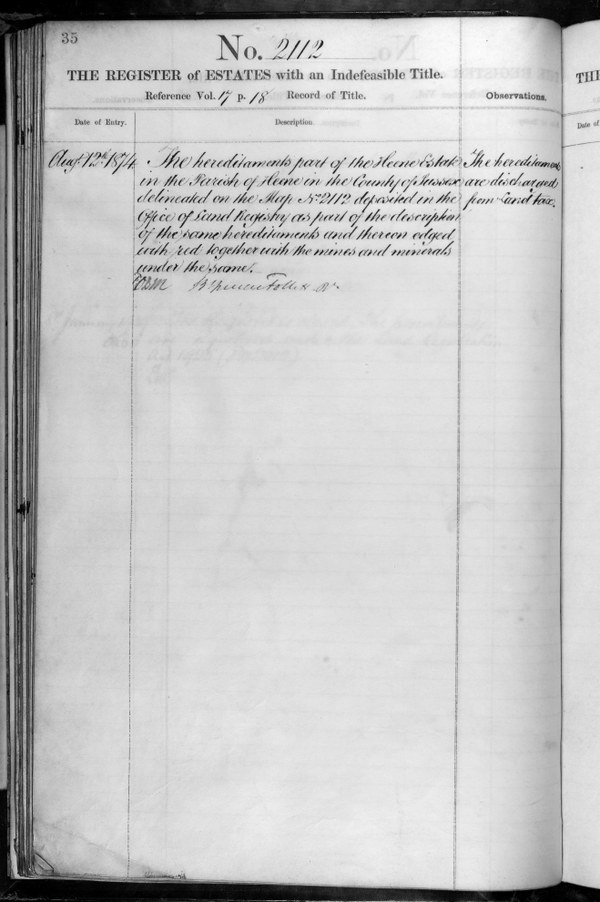 35
No. 2112
THE REGISTER of ESTATES with an Indefeasible Title.
Reference Vol. 17 p. 18 Record of Title.
Observations.
Date of Entry.
Description.
Augt. 12th 1874
The hereditaments part of the Heene Estate
in the Parish of Heene in the County of Sussex
delineated on the Map No. 2112 deposited in the
Office of Land Registry as part of the description
of the same hereditaments and thereon edged
with red together with the mines and minerals
under the same.
Brent Follett
The hereditaments
are discharged
from Land tax.
THE
Date of